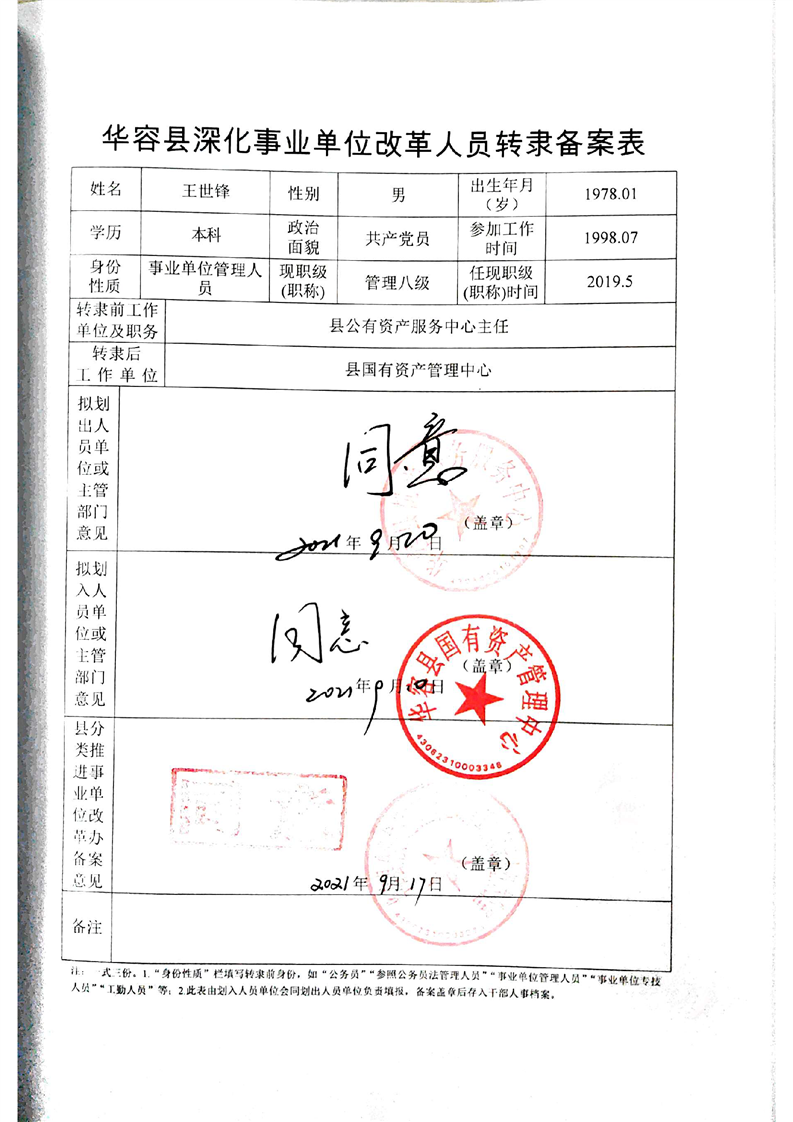 华容县深化事业单位改革人员转隶备案表
姓名 王世锋 性别 男 出生年月（岁） 1978.01
学历 本科 政治面貌 共产党员 参加工作时间 1998.07
身份性质 事业单位管理人员 现职级(职称) 管理八级 任现职级(职称)时间 2019.5
转隶前工作单位及职务 县公有资产服务中心主任
转隶后工作单位 县国有资产管理中心
拟划出人员单位或主管部门意见
同意
（盖章）
2021年9月20日
拟划入人员单位或主管部门意见
同意
华容县国有资产管理中心
（盖章）
2021年9月20日
43062310003346
县分类推进事业单位改革办备案意见
（盖章）
2021年9月17日
备注
注：一式三份。1.“身份性质”栏填写转隶前身份，如“公务员”“参照公务员法管理人员”“事业单位管理人员”“事业单位专技
人员”“工勤人员”等；2.此表由划入人员单位会同划出人员单位负责填报，备案盖章后存入干部人事档案。